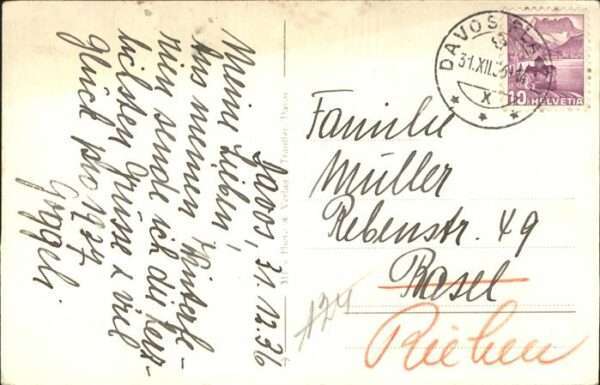 Davos, 31.12.36
Meine Lieben,
Aus meinen Winterfe-
rien sende ich die herz-
lichsten Grüsse & viel
Glück pro 1937
Goggeli.
DAVOS
31.XII.36
X
10
HELVETIA
Familie
Müller
Rebenstr. 49
Basel
Riehen
#24